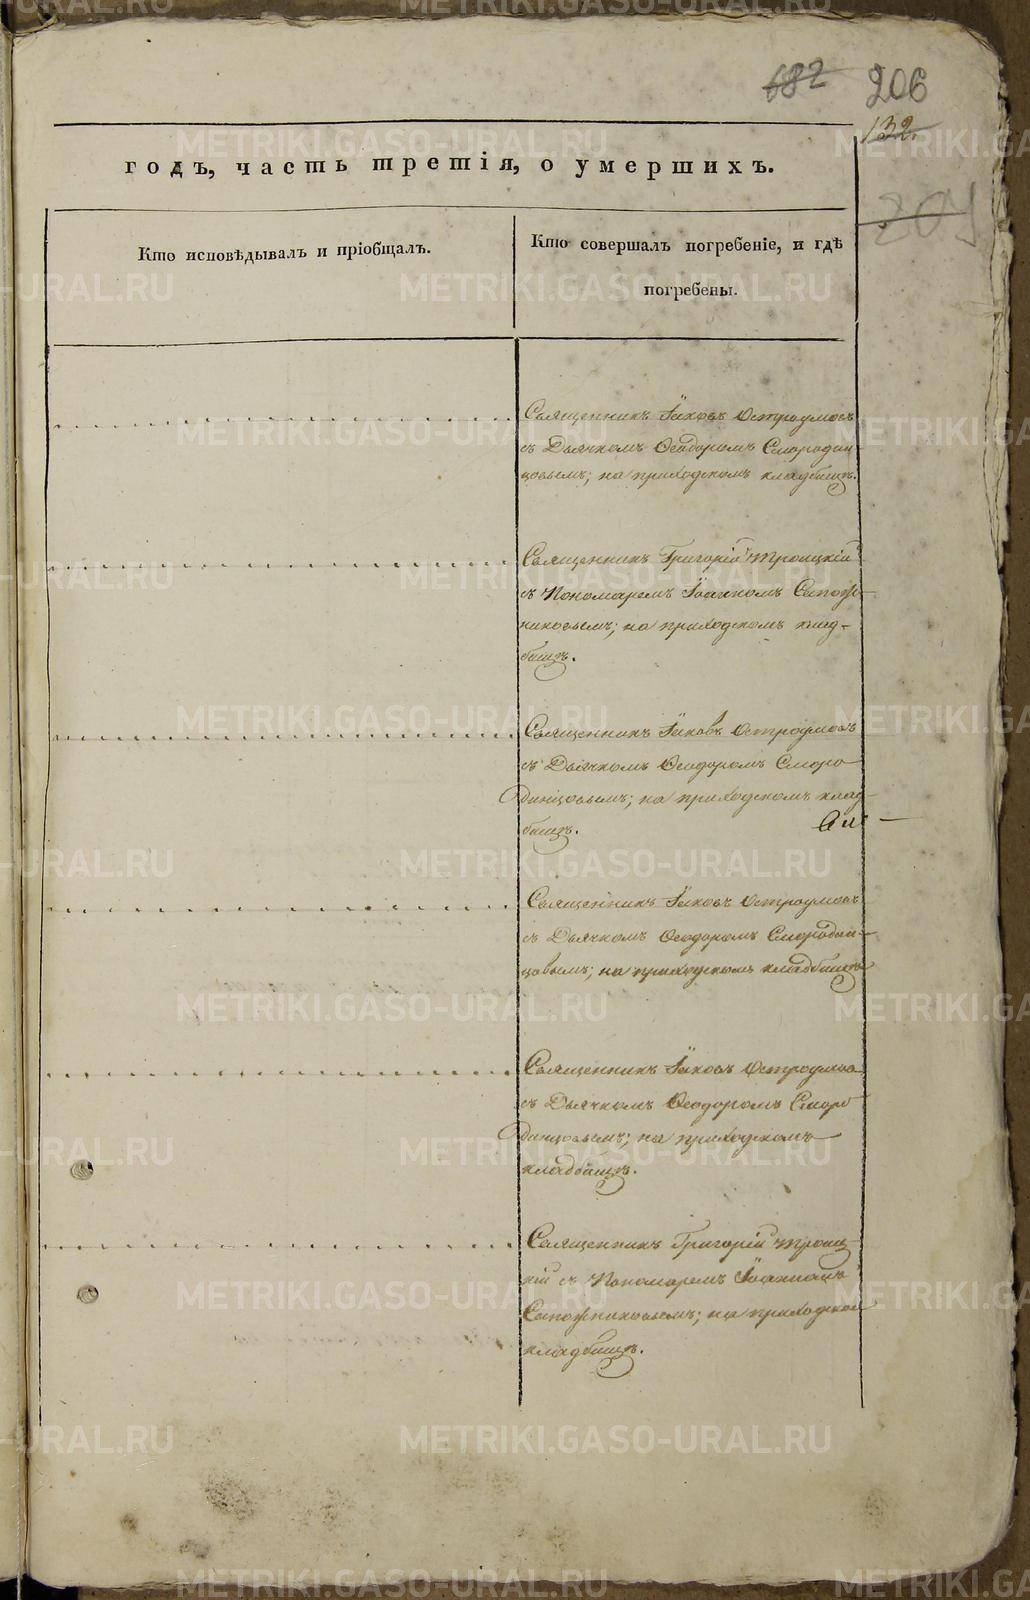 682 206
132.
годъ, часть третія, о умершихъ.
204
Кто исповѣдывалъ и пріобщалъ.
Кто совершалъ погребеніе, и гдѣ
погребены.
Священникъ Іаковъ Остроумовъ
съ Дьячкомъ Ѳеодоромъ Смородин-
цовымъ; на приходскомъ кладбищѣ.
Священникъ Григорій Троицкій
съ Пономаремъ Іоанномъ Сапож-
никовымъ; на приходскомъ клад-
бищѣ.
Священникъ Іаковъ Остроумовъ
съ Дьячкомъ Ѳеодоромъ Сморо
динцовымъ; на приходскомъ клад-
бищѣ.
Священникъ Іаковъ Остроумовъ
съ Дьячкомъ Ѳеодоромъ Смородин-
цовымъ; на приходскомъ кладбищѣ
Священникъ Іаковъ Остроумовъ
съ Дьячкомъ Ѳеодоромъ Сморо
динцовымъ; на приходскомъ
кладбищѣ.
Священникъ Григорій Троиц-
кій съ Пономаремъ Іоанномъ
Сапожниковымъ; на приходском
кладбищѣ.
METRIKI.GASO-URAL.RU